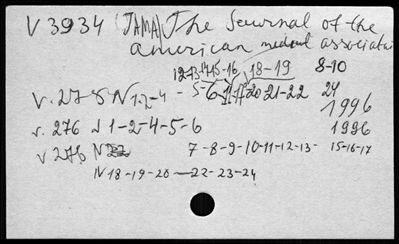 V 3934 (JAMA) The Journal of the
american medical associatio
12-13-14-15-16 18-19 8-10
V. 275 N 1-2-4 - 5-6 20 21-22 24
1996
v. 276 N 1-2-4-5-6 1996
v 276 N 7-8-9-10-11-12-13- 15-16-17
N 18-19-20-22-23-24